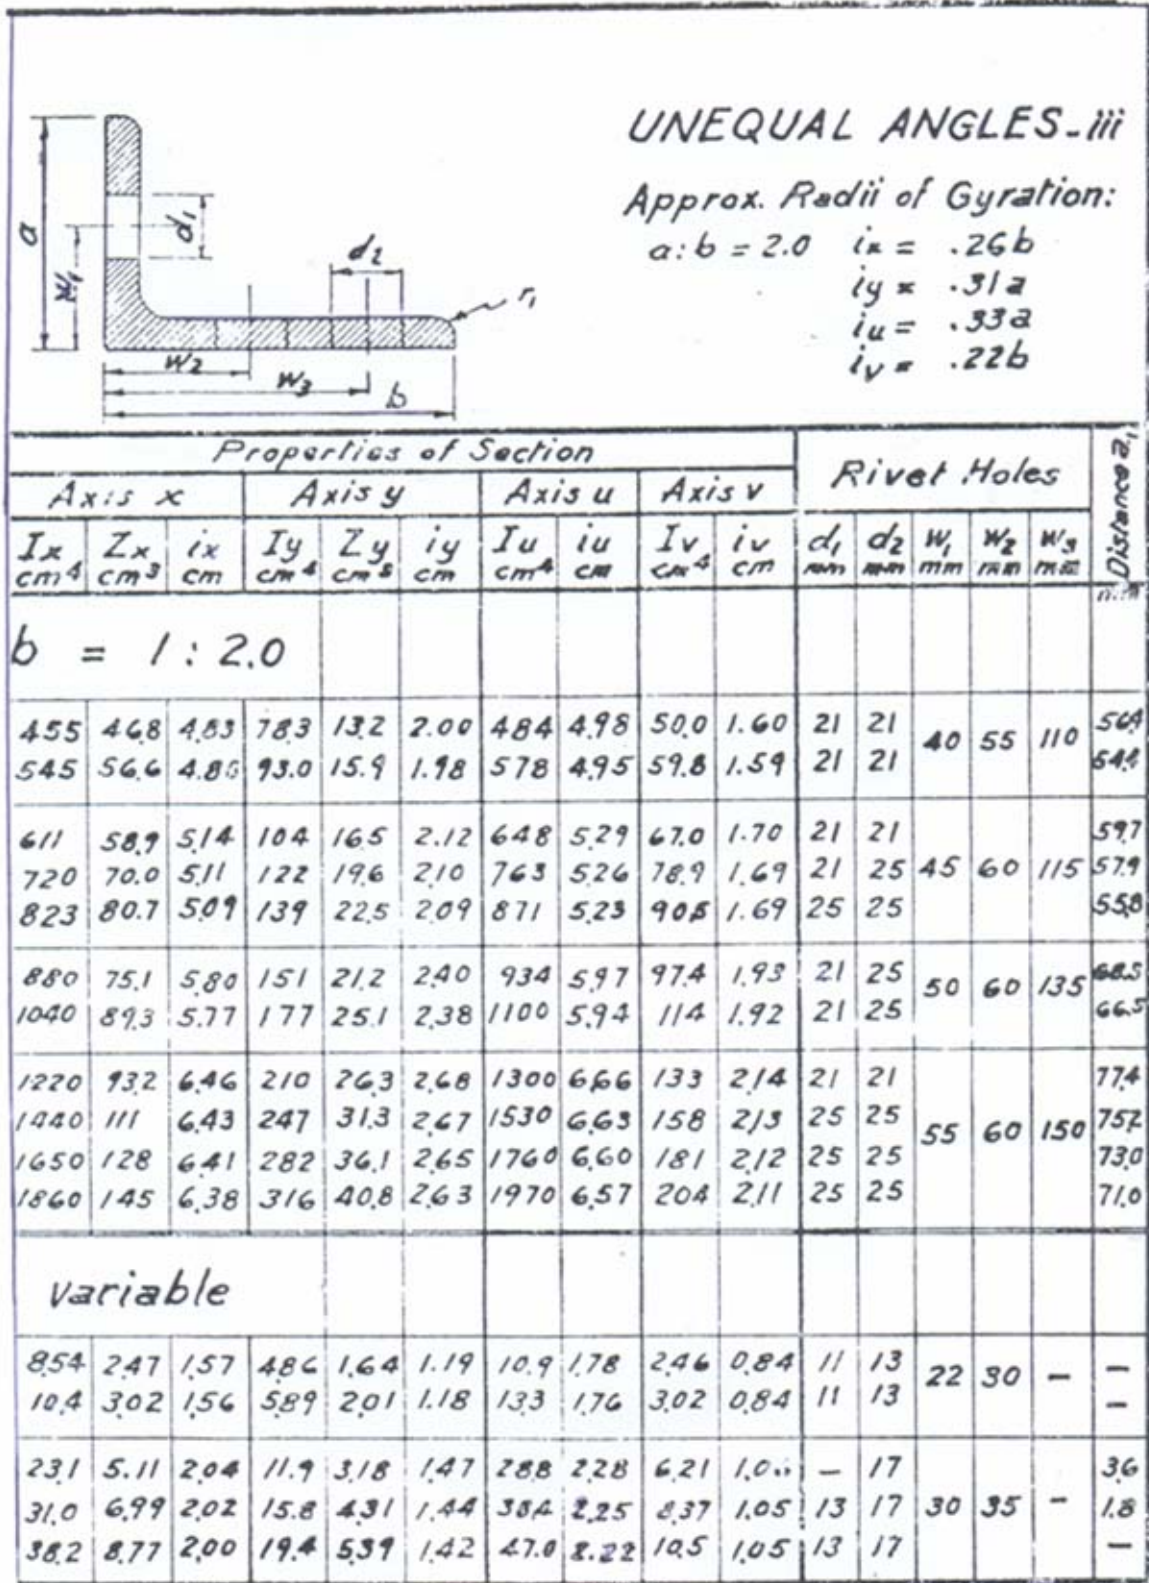 UNEQUAL ANGLES-iii
Approx. Radii of Gyration:
a:b = 2.0 ix = .26b
iy = .31a
iu = .33a
iv = .22b
a
w1
d1
d2
r1
w2
w3
b
Properties of Section
Rivet Holes
Distance a1
Axis x Axis y Axis u Axis v
Ix cm4 Zx cm3 ix cm Iy cm4 Zy cm3 iy cm Iu cm4 iu cm Iv cm4 iv cm d1 mm d2 mm W1 mm W2 mm W3 mm mm
b = 1 : 2.0
455 46.8 4.83 78.3 13.2 2.00 484 4.98 50.0 1.60 21 21 40 55 110 56.4
545 56.6 93.0 15.9 1.98 578 4.95 59.8 1.59 21 21 54.4
611 58.9 5.14 104 16.5 2.12 648 5.29 67.0 1.70 21 21 59.7
720 70.0 5.11 122 19.6 2.10 763 5.26 78.9 1.69 21 25 45 60 115 57.9
823 80.7 5.09 139 22.5 2.09 871 5.23 90.5 1.69 25 25 55.8
880 75.1 5.80 151 21.2 2.40 934 5.97 97.4 1.93 21 25 50 60 135 68.5
1040 89.3 5.77 177 25.1 2.38 1100 5.94 114 1.92 21 25 66.5
1220 93.2 6.46 210 26.3 2.68 1300 6.66 133 2.14 21 21 77.4
1440 111 6.43 247 31.3 2.67 1530 6.63 158 2.13 25 25 55 60 150 75.2
1650 128 6.41 282 36.1 2.65 1760 6.60 181 2.12 25 25 73.0
1860 145 6.38 316 40.8 2.63 1970 6.57 204 2.11 25 25 71.0
variable
8.54 2.47 1.57 4.86 1.64 1.19 10.9 1.78 2.46 0.84 11 13 22 30 - -
10.4 3.02 1.56 5.89 2.01 1.18 13.3 1.76 3.02 0.84 11 13 -
23.1 5.11 2.04 11.9 3.18 1.47 28.8 2.28 6.21 - 17 3.6
31.0 6.99 2.02 15.8 4.31 1.44 38.4 2.25 8.37 1.05 13 17 30 35 - 1.8
38.2 8.77 2.00 19.4 5.39 1.42 47.0 2.22 10.5 1.05 13 17 -